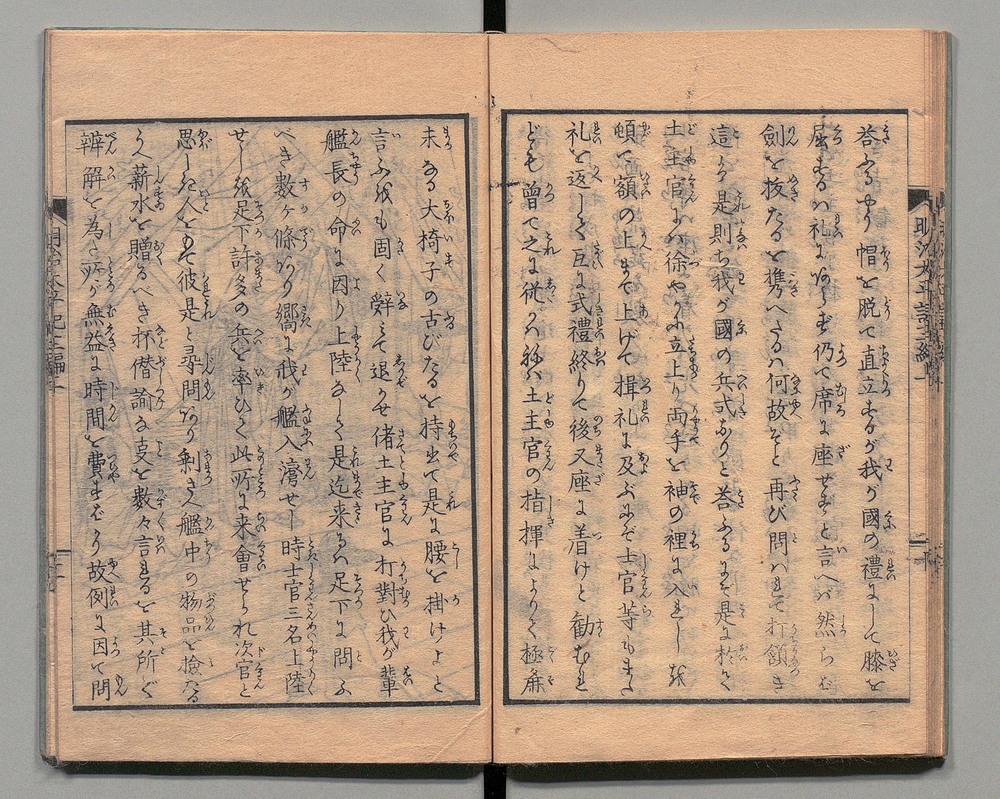 荅ふるやう帽を脱て直立するが我が國の禮にして膝を
屈するハ礼にあらず仍て席に座せずと言へバ然らむ
劍を抜たるを携へたるハ何故ぞと再び問ハれて打額き
這ハ是則ち我が國の兵式なりと荅ふるにぞ是に於て
土主官ハ徐やかに立上り両手を袖の裡に入れし
頓て額の上まで上げて揖礼に及ぶにぞ士官等もまた
礼を返して互に式禮終りて後又座に着けと勧むれ
ども曽て之に従ハねバ土主官の指揮によりて極麁
末なる大椅子の古びたるを持出て是に腰を掛けよと
言ふ
も固く辤て退かせ偖土主官に打對ひ我が輩
艦長の命に因り上陸なして是迄来るハ足下に問ふ
べき數ヶ條あり嚮に我が艦入灣せし時士官三名上陸
せし
足下許多の兵を率ひて此所に来會せられ次官と
思しき人をもて彼是と尋問あり剰さへ艦中の物品を撿なる
うへ薪水を贈るべき抔僭諭なる
を數々言るゝを其所ぐ
辨解を為さバ
無益に時間を費すより故例に因て問